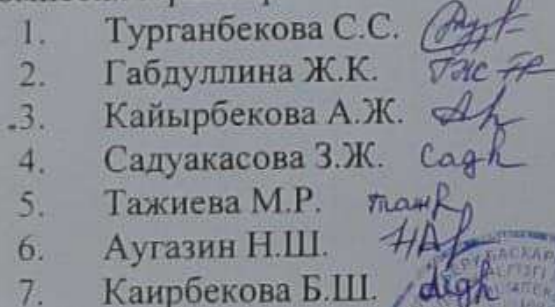 1. Турганбекова С.С.
2. Габдуллина Ж.К.
.3. Кайырбекова А.Ж.
4. Садуакасова З.Ж. Садһ
5. Тажиева М.Р.
6. Аугазин Н.Ш.
7. Каирбекова Б.Ш.